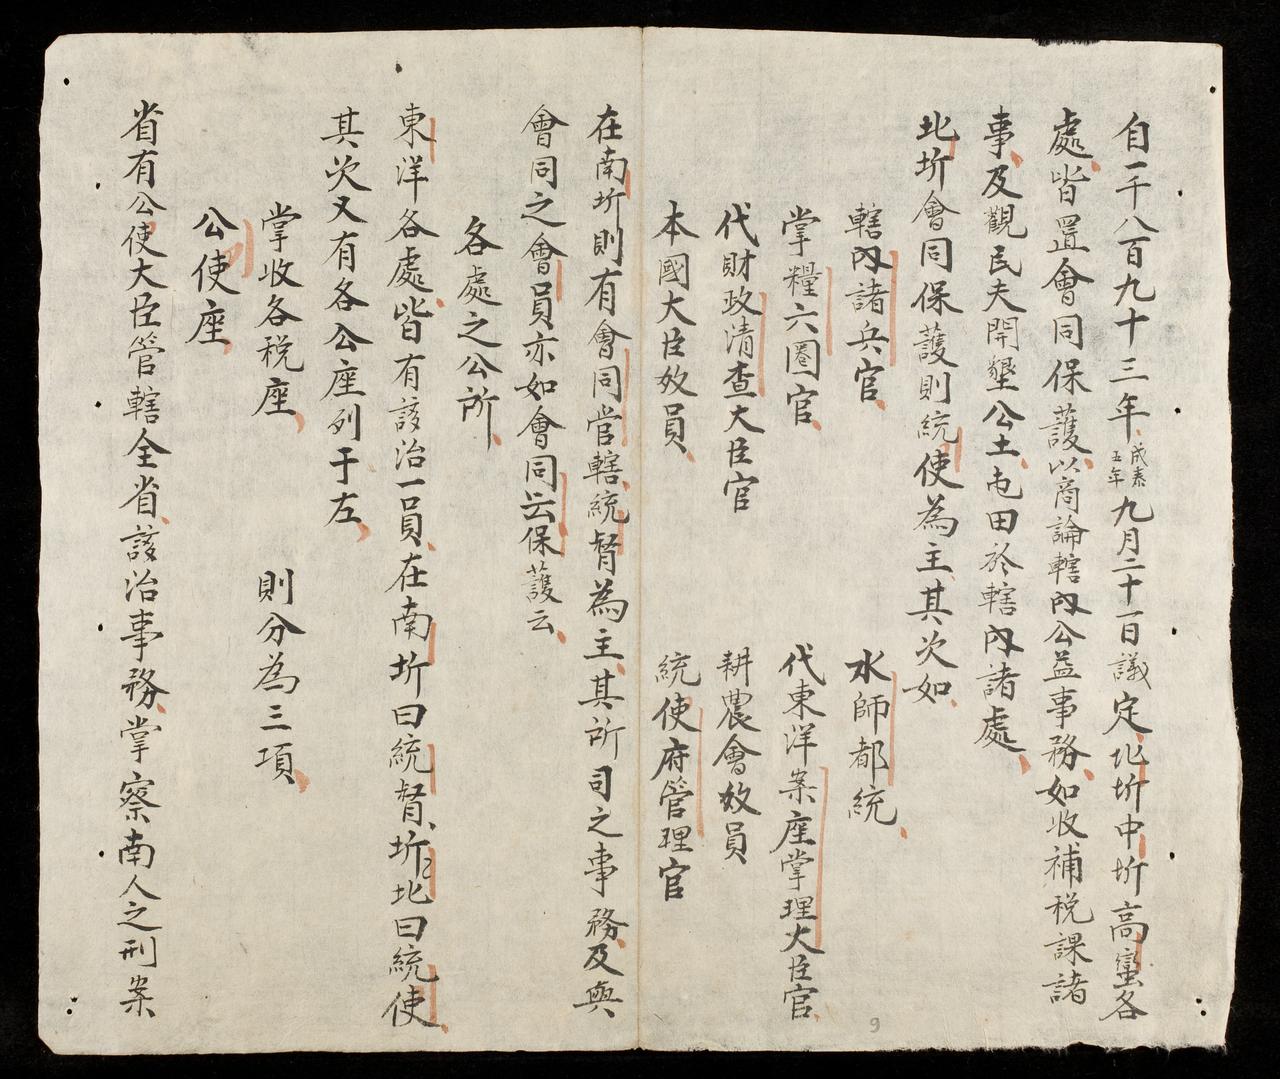 自一千八百九十三年成泰五年九月二十一日議定北圻中圻高蠻各
處皆置會同保護以商論轄内公益事務如收補税課諸
事及觀民夫開墾公土屯田於轄内諸處
北圻會同保護則統使為主其次如
轄内諸兵官 水師都統
掌糧六圈官 代東洋案座掌理大臣官
代財政清查大臣官 耕農會效員
本國大臣效員 統使府管理官
在南圻則有會同官轄統督為主其所司之事務及與
會同之會員亦如會同云保護云
各處之公所
東洋各處皆有該治一員在南圻曰統督圻北曰統使
其次又有各公座列于左
掌收各税座 則分為三項
公使座
省有公使大臣管轄全省該治事務掌察南人之刑案
9